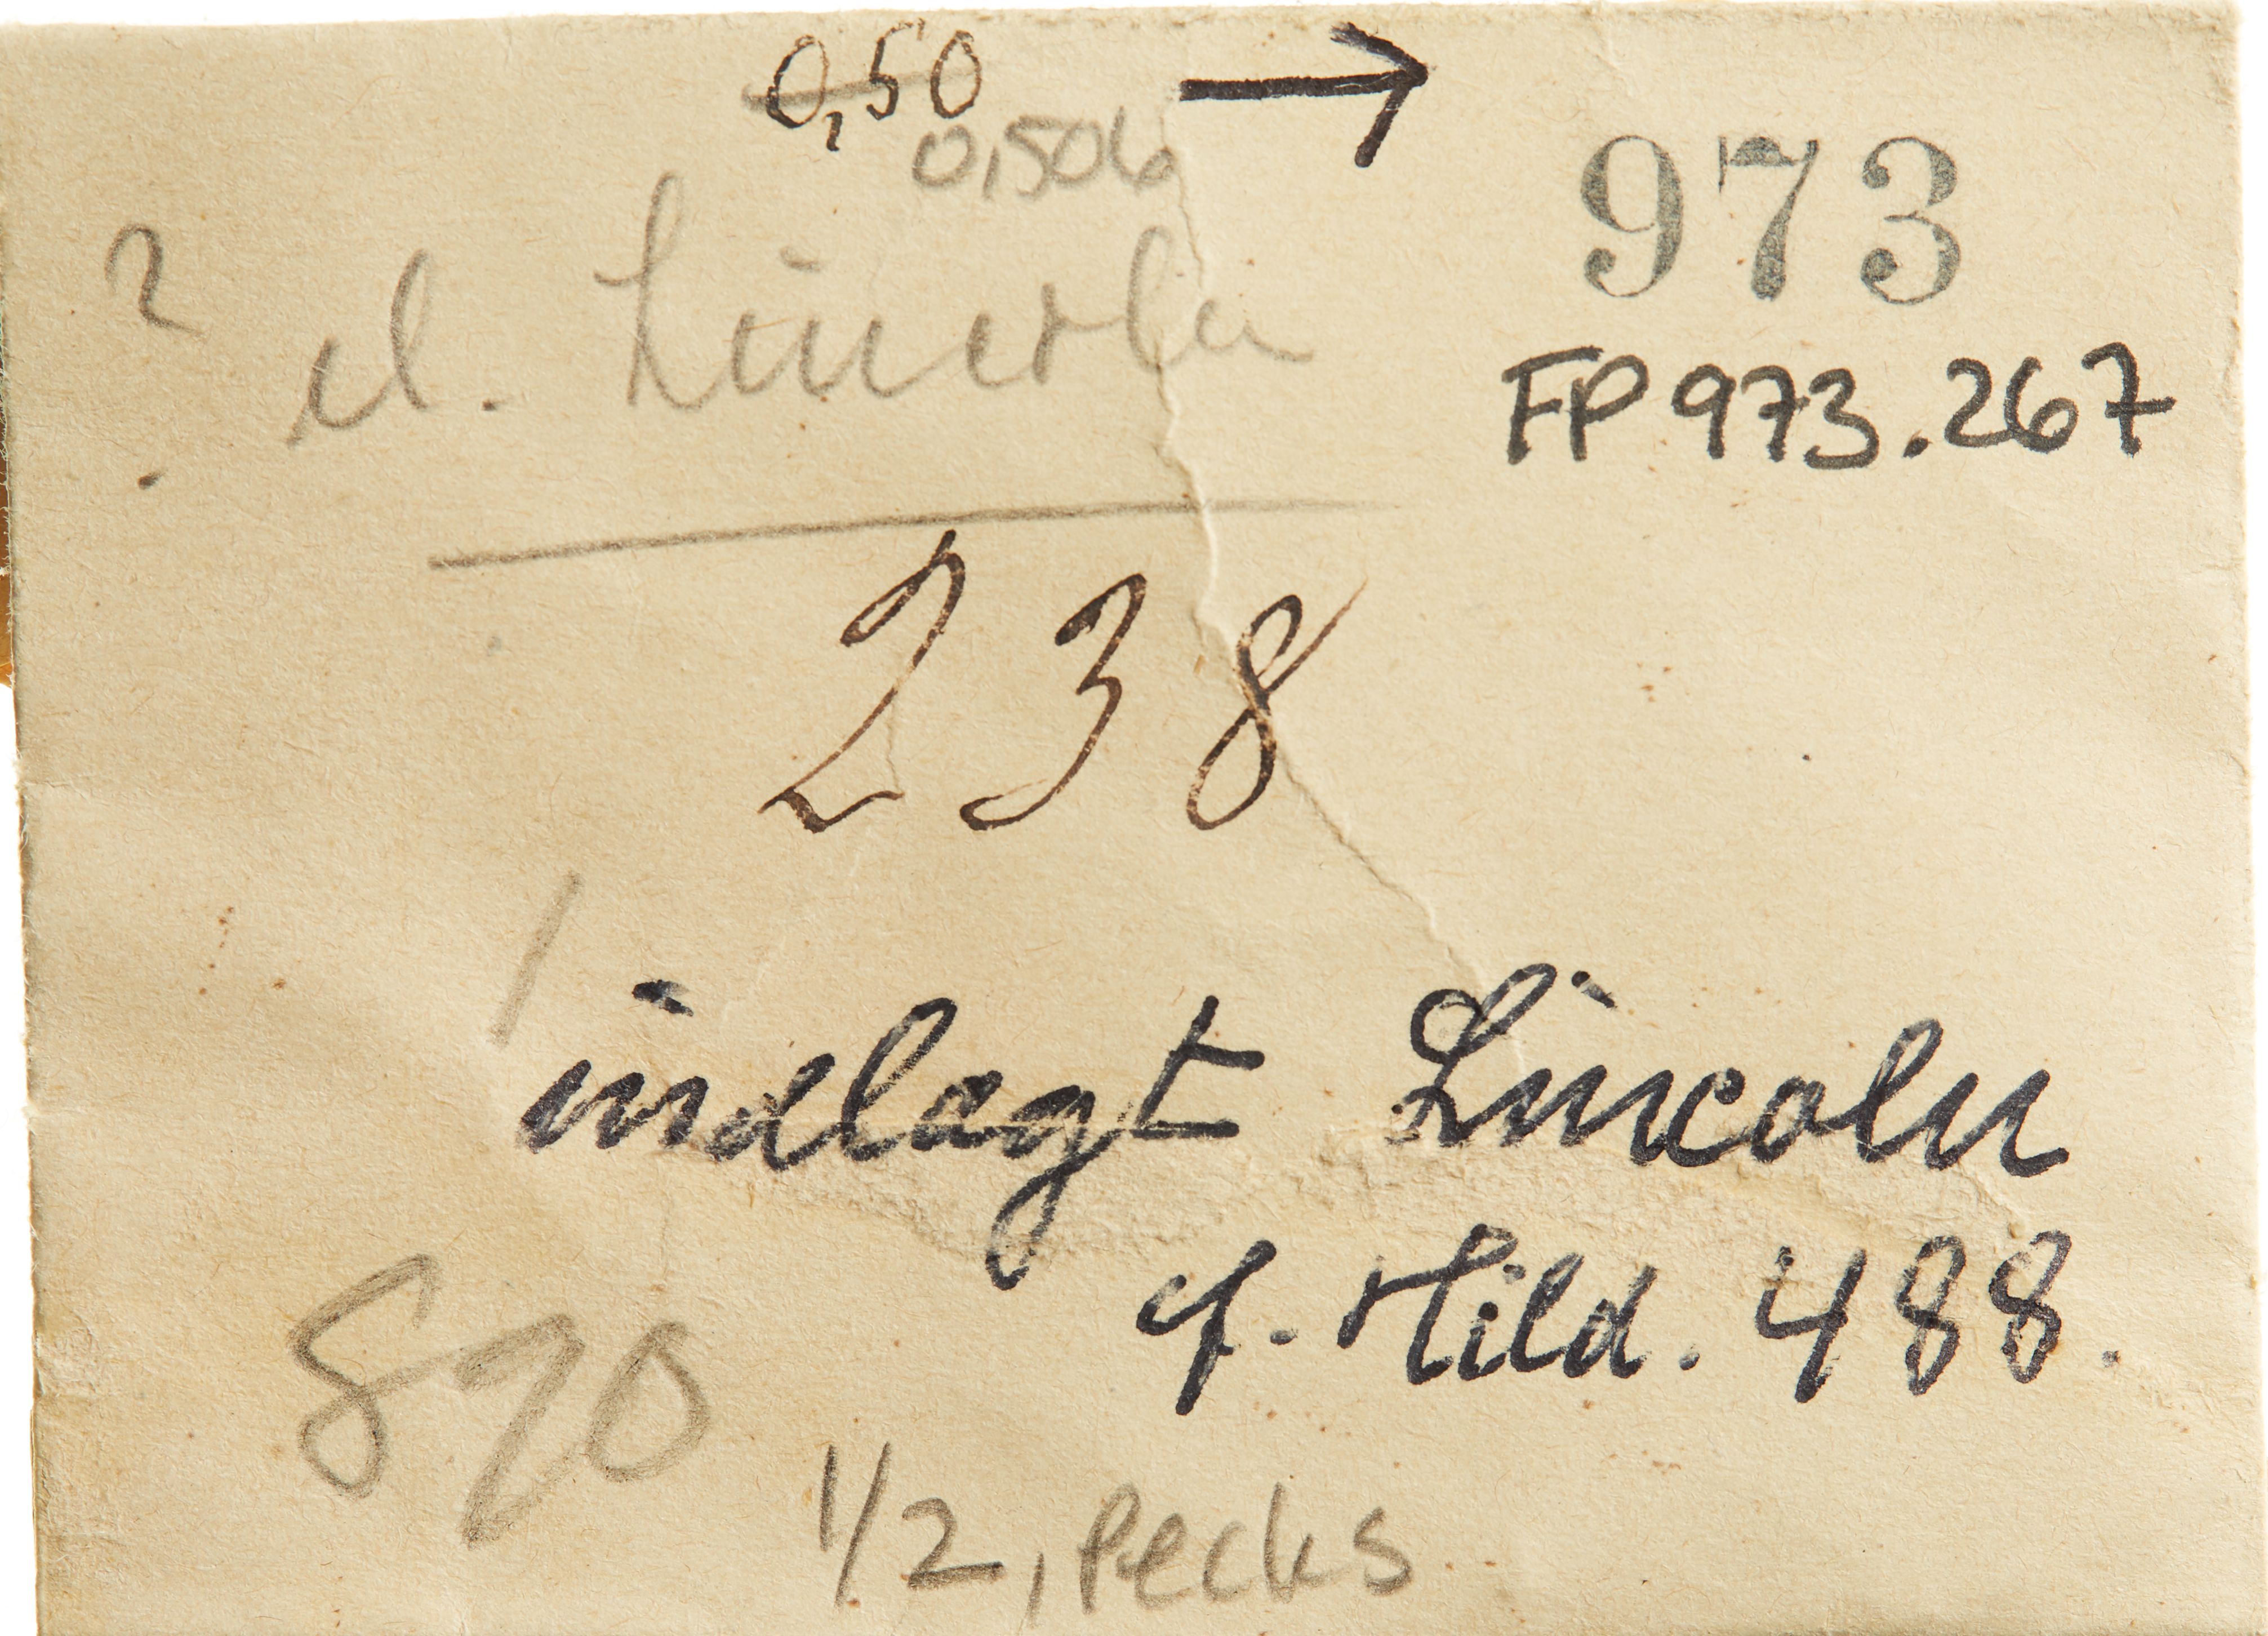 0,50 →
0,506
973
? el. Lincoln
FP 973.267
238
indlagt Lincoln
cf. Hild. 488.
890
1/2, Pecks